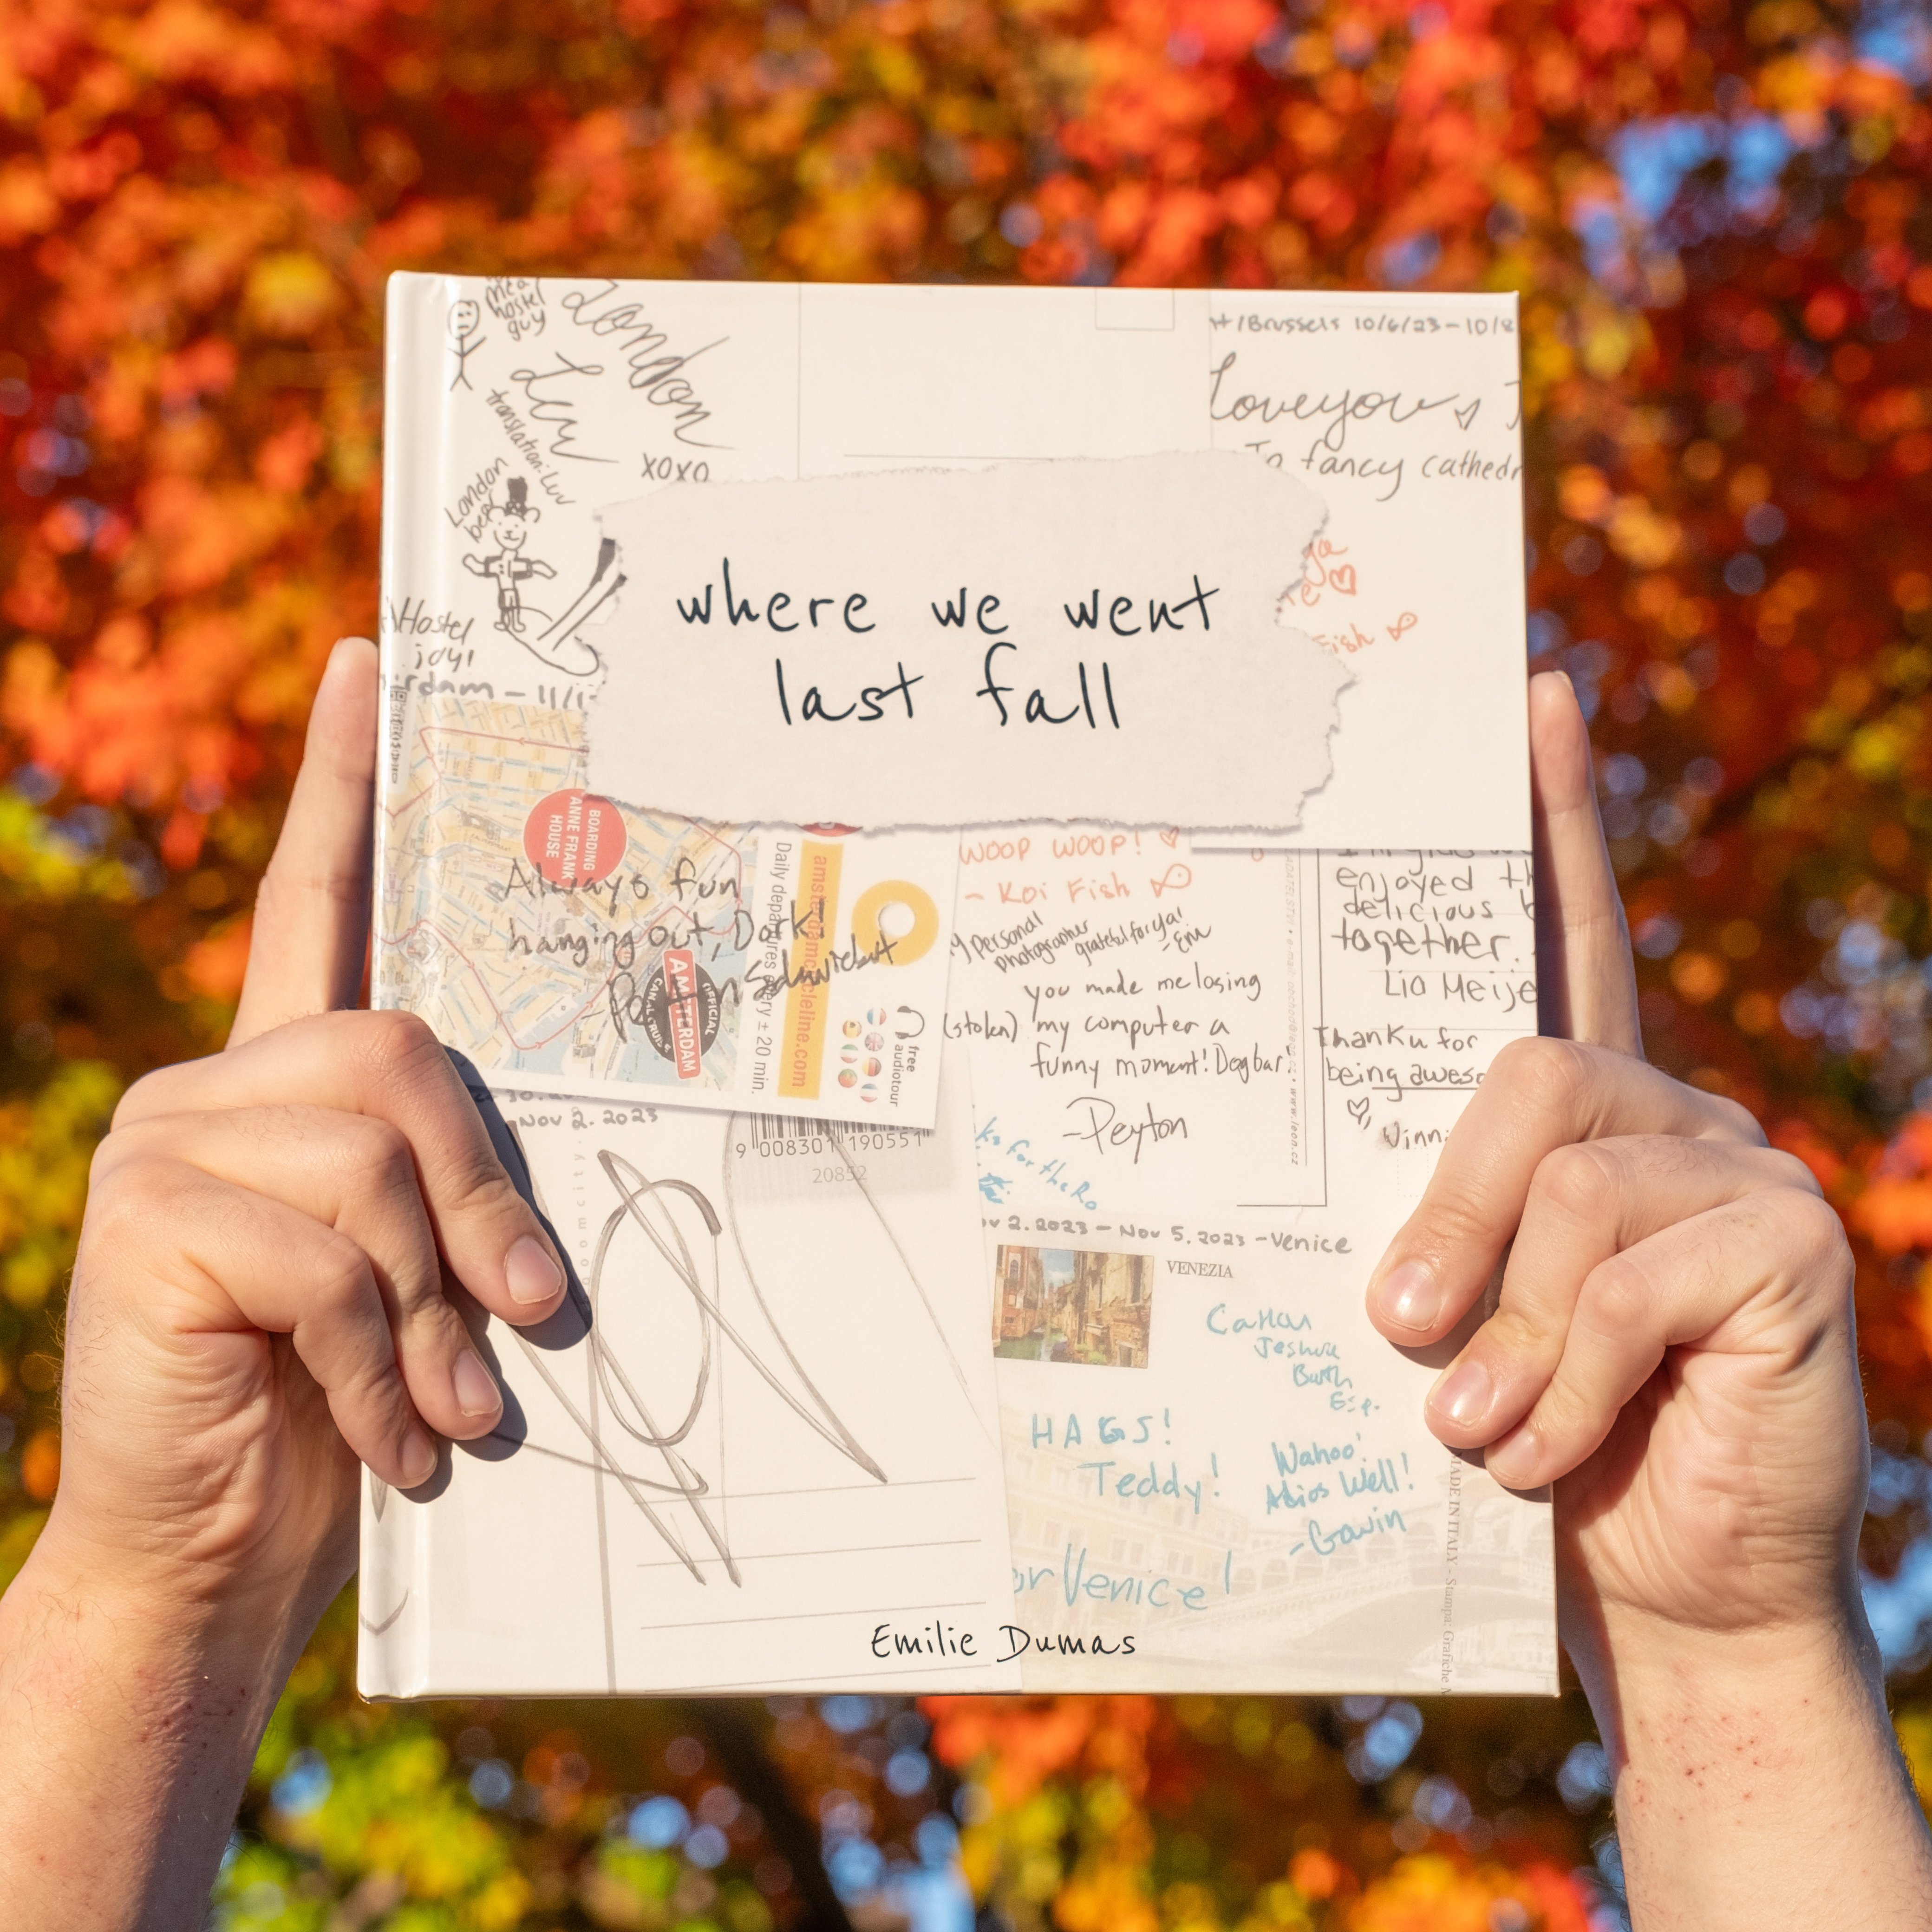 hostel
guy
London
Luv
translation: Luv
xoxo
London
bear
Hostel
/Brussels 10/6/23-10/8
Love you
fancy cathedr
where we went
last fall
Fish
BOARDING
ANNE FRANK
HOUSE
Always fun
hanging out, Dork.
AMSTERDAM
OFFICIAL
Daily departures every ± 20 min.
free
audiotour
WOOP WOOP!
- Koi Fish
personal
photographer
grateful for ya!
- Em
you made me losing
(stolen) my computer a
funny moment! Dogbar!
-Peyton
www.leon.cz
enjoyed
delicious
together.
Lia Meije
Thank u for
being aweso
Nov 2. 2023
9 008301 190551
20852
for the
2. 2023 - Nov 5. 2023 - Venice
VENEZIA
HAGS!
Teddy!
Wahoo!
Adios Well!
-Gawin
or Venice!
MADE IN ITALY - Stampa: Grafiche
Emilie Dumas